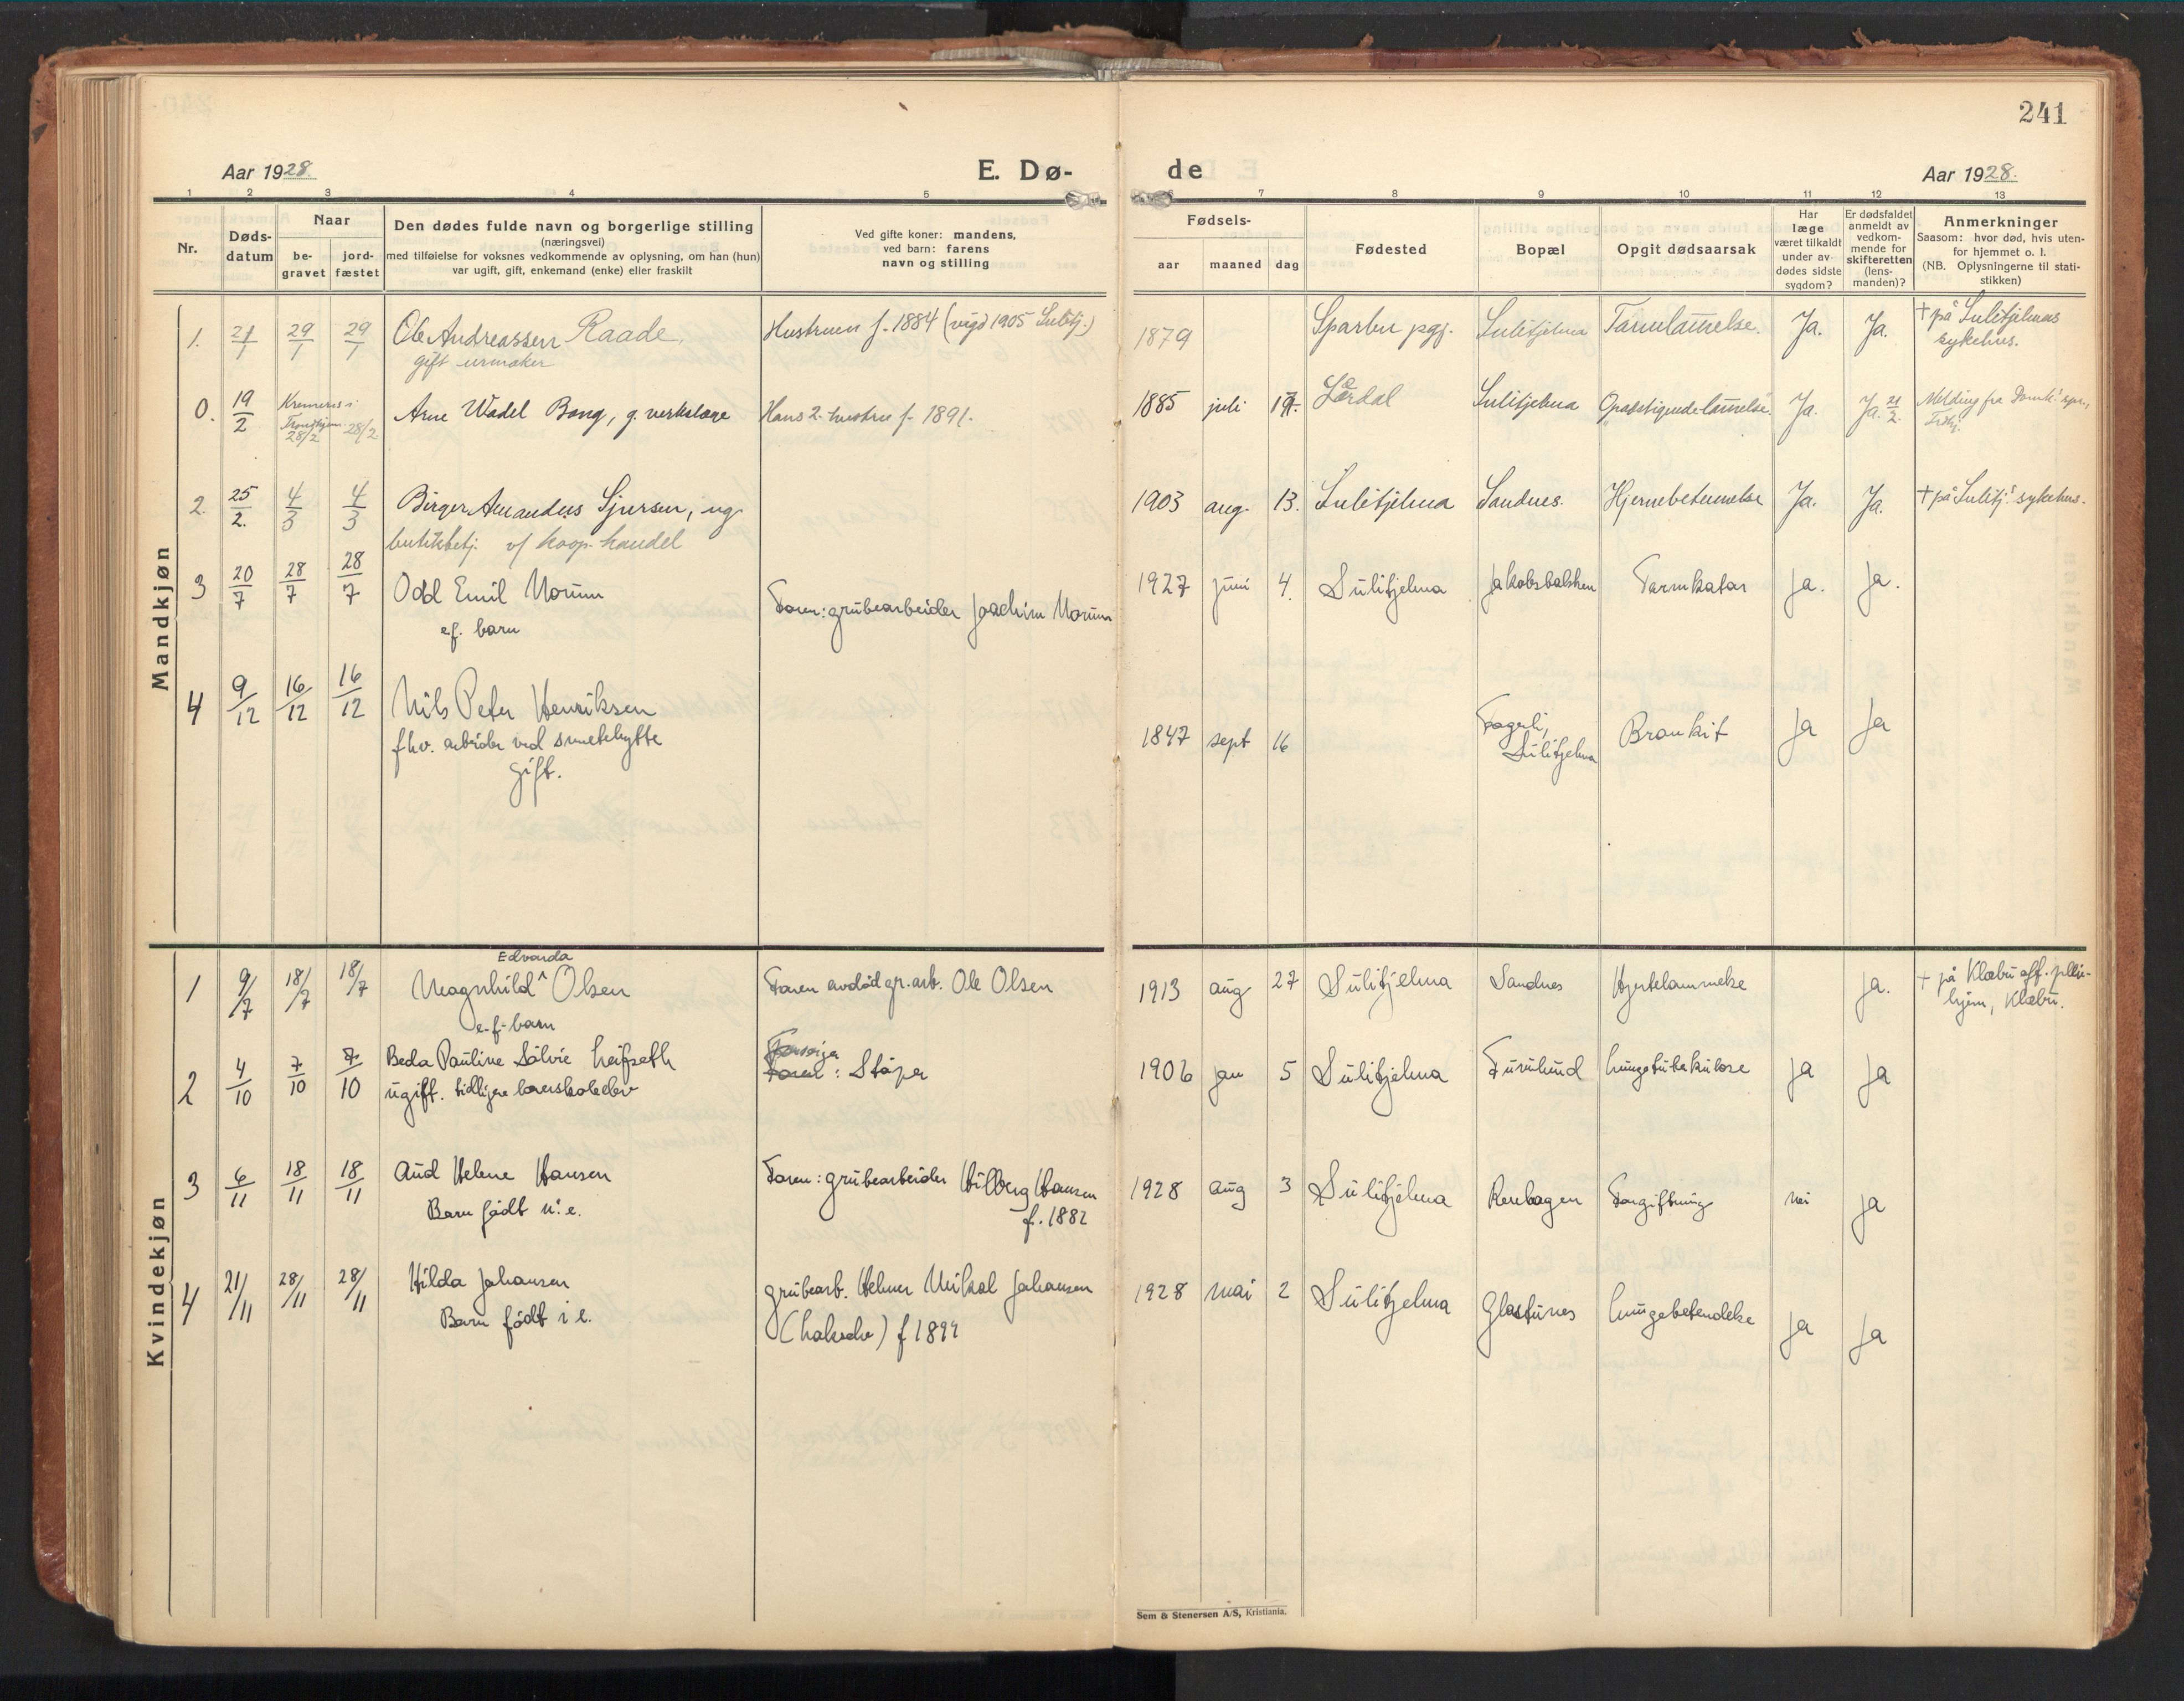 241
Aar 1928.
E. Dø-
de
Aar 1928.
1 2 3 4 5 6 7 8 9 10 11 12 13
Nr.
Døds-
datum
Naar
be-
gravet
jord-
fæstet
Den dødes fulde navn og borgerlige stilling
(næringsvei)
med tilføielse for voksnes vedkommende av oplysning, om han (hun)
var ugift, gift, enkemand (enke) eller fraskilt
Ved gifte koner: mandens,
ved barn: farens
navn og stilling
Fødsels-
aar maaned dag
Fødested
Bopæl
Opgit dødsaarsak
Har
læge
været tilkaldt
under av-
dødes sidste
sygdom?
Er dødsfaldet
anmeldt av
vedkom-
mende for
skifteretten
(lens-
manden)?
Anmerkninger
Saasom: hvor død, hvis uten-
for hjemmet o. l.
(NB. Oplysningerne til stati-
stikken)
Mandkjøn
1. 21/1 29/1 29/1 Ole Andreassen Raade, Hustruen f. 1884 (vigd 1905 Sulitj.) 1879 Sparbu pgj. Sulitjelma Tarmlammelse. Ja. Ja. † på Sulitjelmas
gift urmaker
sykehus.
0. 19/2 Kremeres i
Trondhjem
28/2 28/2 Arne Wadel Bang, g. verkslæge Hans 2. hustru f. 1891. 1885 juli Lærdal Sulitjelma Opadstigende lammelse. Ja. Ja. 21/2. Melding fra Domk.
2. 25/2. 4/3 4/3 Birger Amandus Sjursen, ug. 1903 aug. 13. Sulitjelma Sandnes. Hjernebetennelse Ja. Ja. † på Sulitj.s sykehus.
butikkbetj. v/ koop. handel
3 20/7 28/7 28/7 Odd Emil Morum Faren: grubearbeider Joachim Morum 1927 juni 4. Sulitjelma Jakobsbakken Tarmkatar Ja. Ja.
e.f. barn
4 9/12 16/12 16/12 Nils Peter Henriksen 1847 sept 16 Fagerli, Bronkit Ja Ja
Sulitjelma
fhv. arbeider ved smeltehytte
gift.
Kvindekjøn
Edvarda
1 9/7 18/7 18/7 Magnhild ^ Olsen Faren avdød gr.arb. Ole Olsen 1913 aug 27 Sulitjelma Sandnes Hjertelammelse ja. † på Klæbu off. pleie-
hjem, Klæbu.
e.f. barn
2 4/10 7/10 7/10 Beda Pauline Solvie Leifseth : Støper 1906 jan 5 Sulitjelma Furulund Lungetuberkulose Ja Ja
ugift. tidligere lærerskoleelev
3 6/11 18/11 18/11 Aud Helene Hansen Faren: grubearbeider Hilberg Hansen 1928 aug 3 Sulitjelma Renhagen Forgiftning nei Ja
Barn født u. e.
f. 1882
4 21/11 28/11 28/11 Hilda Johansen grubearb. Helmer Mikal Johansen 1928 mai 2 Sulitjelma Glastunes Lungebetendelse Ja Ja
Barn født i e.
f 1899
Sem & Stenersen A/S, Kristiania.